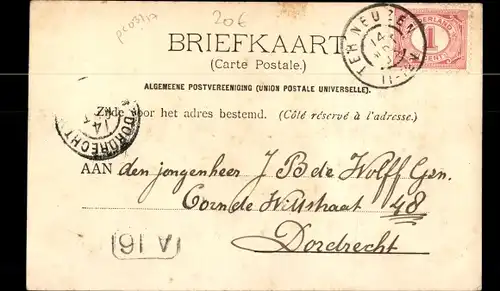 20€
BRIEFKAART
(Carte Postale.)
TER NEUZEN
14
NEDERLAND
1
CENT
ALGEMEENE POSTVEREENIGING (UNION POSTALE UNIVERSELLE).
Zijde voor het adres bestemd. (Côté réservé à l'adresse.)
DORDRECHT
14
AAN den jongenheer J B de Wolff Gzn.
Corn de Wittstraat 48
Dordrecht
A 16